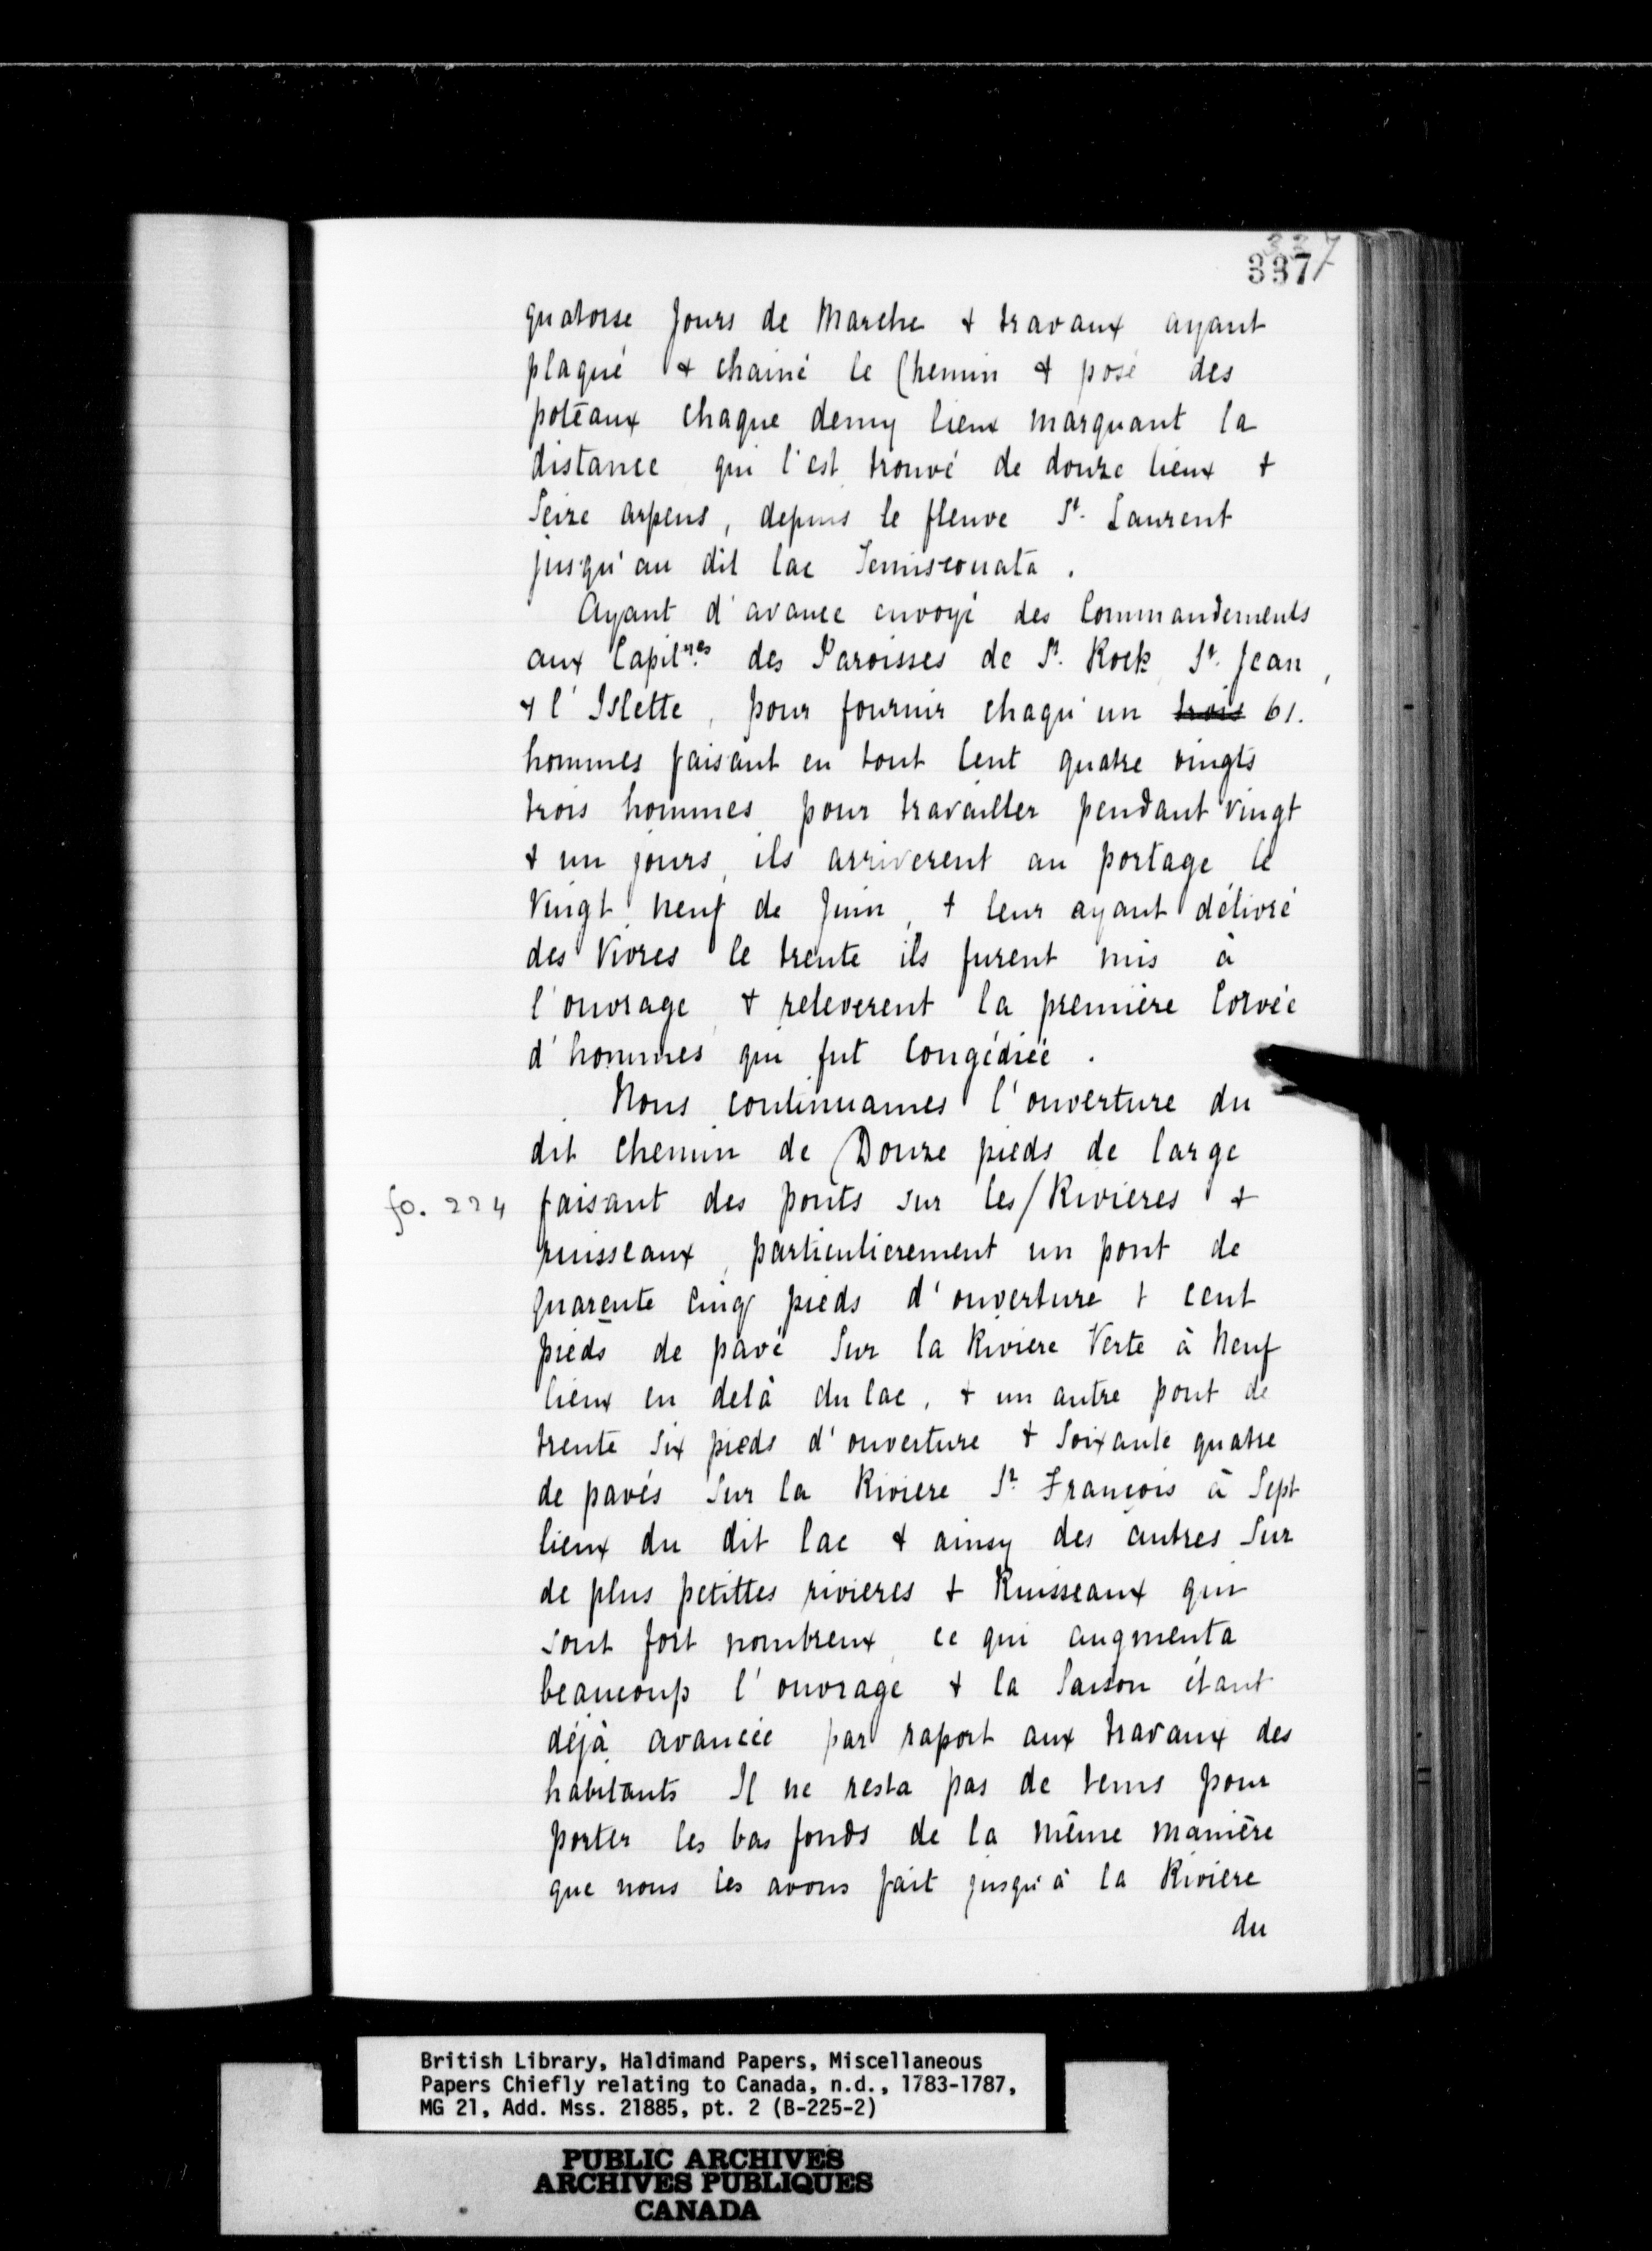 337
337
quatorse Jours de Marche & travaux ayant
plaqué & chainé le Chemin & posé des
potéaux chaque demy lieux marquant la
distance qui s'est trouvé de douze lieux &
Seize arpens, depuis le fleuve St. Laurent
jusqu'au dit lac Temiscouata.
Ayant d'avance envoyé des Commandements
aux Capitnes des Paroisses de St. Rock, St. Jean,
& l'Islette, pour fournir chaqu'un trois 61.
hommes faisant en tout Cent quatre vingts
trois hommes pour travailler pendant vingt
& un jours, ils arriverent au portage le
Vingt neuf de Juin, & leur ayant délivré
des Vivres le trente ils furent mis à
l'ouvrage & releverent la première Corvée
d'hommes qui fut Congédiéé.
Nous continuames l'ouverture du
dit chemin de Douze pieds de large
fo. 224 faisant des ponts sur les/Rivieres &
ruisseaux, particulierement un pont de
quarente cinq pieds d'ouverture & cent
pieds de pavé Sur la Riviere Verte à Neuf
lieux en delà du lac, & un autre pont de
trente Six pieds d'ouverture & Soixante quatre
de pavés Sur la Riviere St. François à Sept
lieux du dit lac & ainsy des autres Sur
de plus petittes rivieres & Ruisseaux qui
sont fort nombreux, ce qui augmenta
beaucoup l'ouvrage & la Saison étant
déjà avancée par raport aux travaux des
habitants Il ne resta pas de tems pour
porter les bas fonds de la même manière
que nous les avons fait jusqu'à la Rivière
du
British Library, Haldimand Papers, Miscellaneous
Papers Chiefly relating to Canada, n.d., 1783-1787,
MG 21, Add. Mss. 21885, pt. 2 (B-225-2)
PUBLIC ARCHIVES
ARCHIVES PUBLIQUES
CANADA